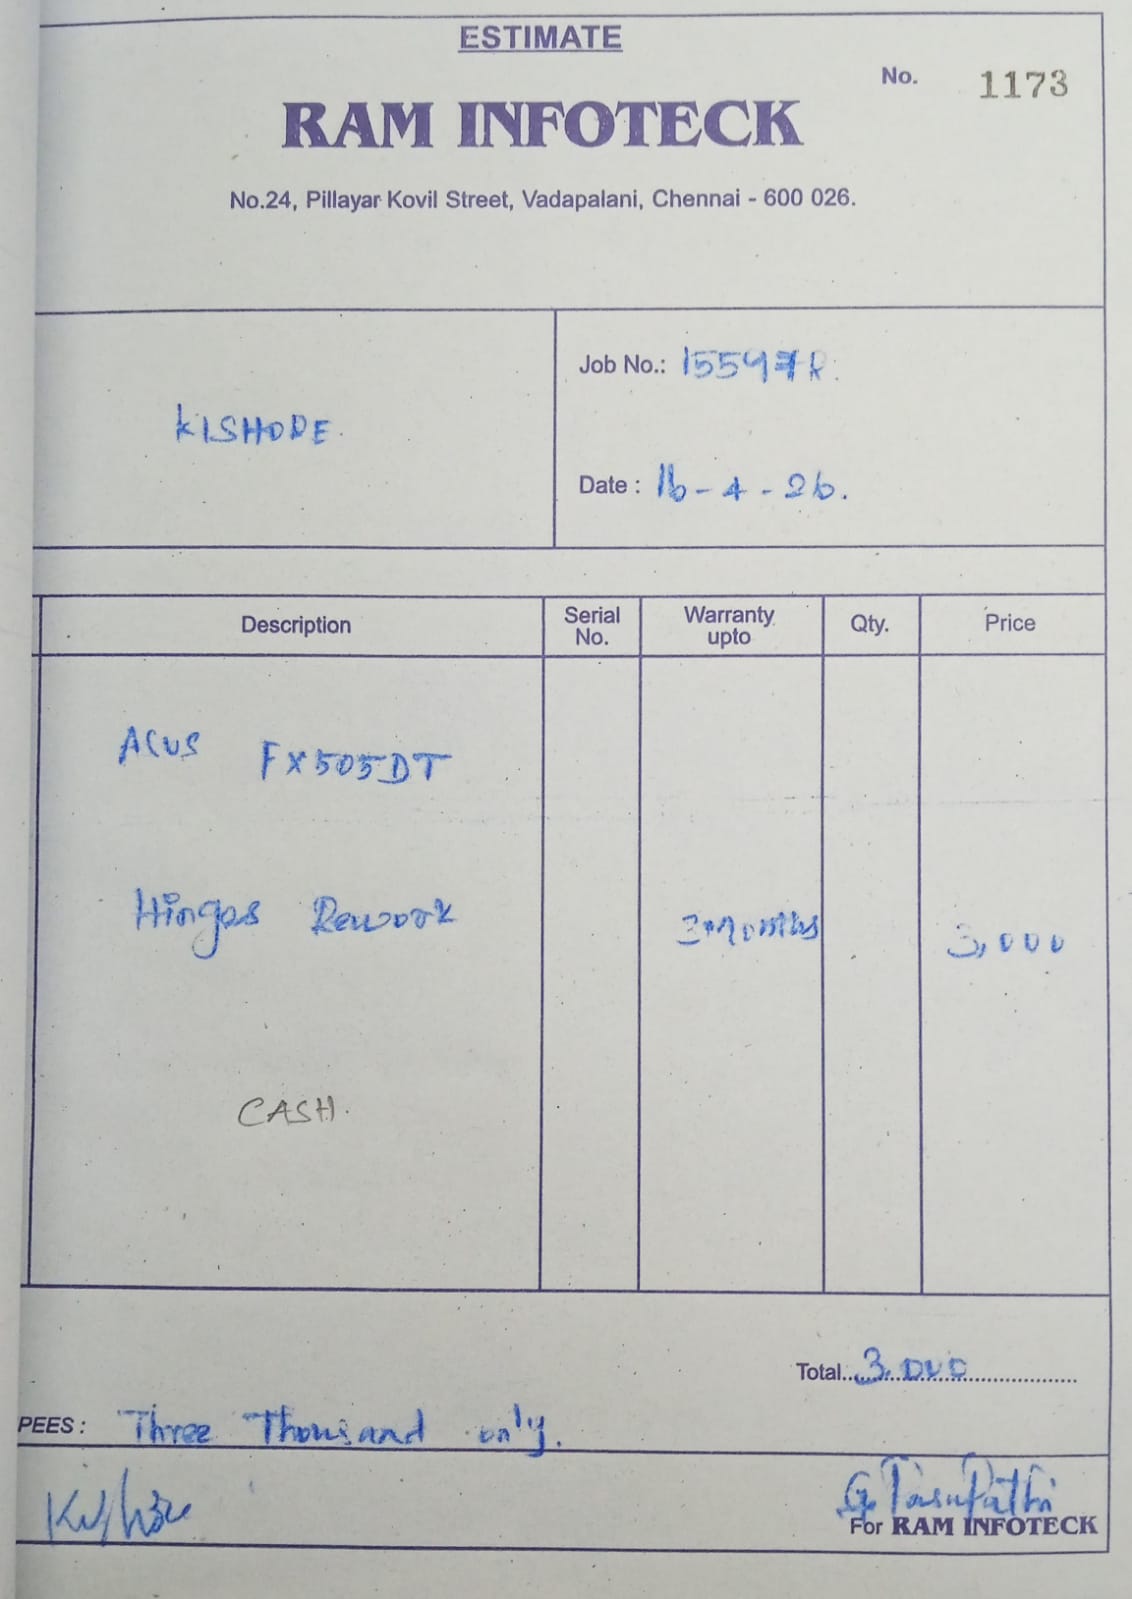 ESTIMATE
No. 1173
RAM INFOTECK
No.24, Pillayar Kovil Street, Vadapalani, Chennai - 600 026.
KISHORE.
Job No.: 15597R.
Date : 16-4-26.
Description Serial No. Warranty upto Qty. Price
ACUS FX505DT
Hinges Rework 3 Months 3,000
CASH.
Total 3,000
PEES : Three Thousand only.
Kishore
For RAM INFOTECK